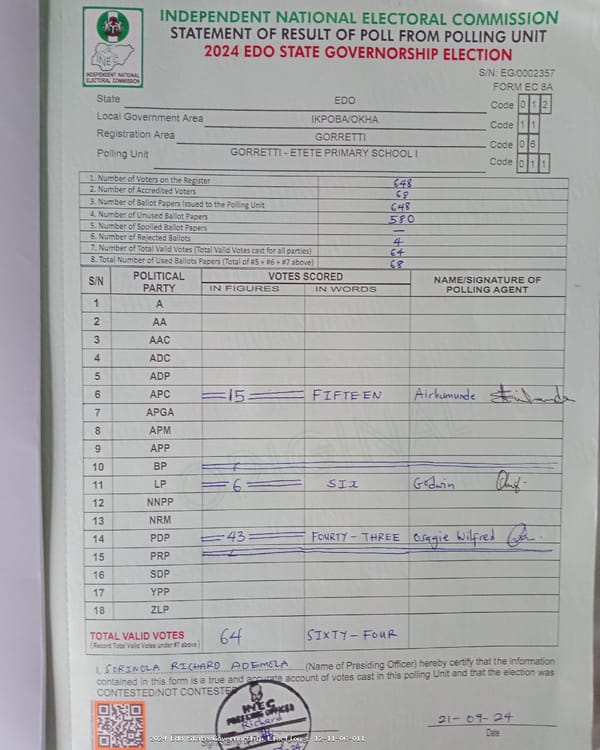 INDEPENDENT NATIONAL ELECTORAL COMMISSION
STATEMENT OF RESULT OF POLL FROM POLLING UNIT
2024 EDO STATE GOVERNORSHIP ELECTION
INEC
INDEPENDENT NATIONAL
ELECTORAL COMMISSION
S/N: EG/0002357
FORM EC 8A
State EDO Code 0 1 2
Local Government Area IKPOBA/OKHA Code 1 1
Registration Area GORRETTI Code 0 6
Polling Unit GORRETTI - ETETE PRIMARY SCHOOL I Code 0 1 1
1. Number of Voters on the Register 648
2. Number of Accredited Voters 68
3. Number of Ballot Papers Issued to the Polling Unit 648
4. Number of Unused Ballot Papers 580
5. Number of Spoiled Ballot Papers —
6. Number of Rejected Ballots 4
7. Number of Total Valid Votes (Total Valid Votes cast for all parties) 64
8. Total Number of Used Ballots Papers (Total of #5 + #6 + #7 above) 68
S/N POLITICAL PARTY VOTES SCORED NAME/SIGNATURE OF POLLING AGENT
IN FIGURES IN WORDS
1 A
2 AA
3 AAC
4 ADC
5 ADP
6 APC 15 FIFTEEN Airhumunde
7 APGA
8 APM
9 APP
10 BP
11 LP 6 SIX Godwin
12 NNPP
13 NRM
14 PDP 43 FOURTY - THREE Osagie Wilfred
15 PRP
16 SDP
17 YPP
18 ZLP
TOTAL VALID VOTES 64 SIXTY - FOUR
(Record Total Valid Votes under #7 above)
I, SORINOLA RICHARD ADEMOLA (Name of Presiding Officer) hereby certify that the information
contained in this form is a true and accurate account of votes cast in this polling Unit and that the election was
CONTESTED/NOT CONTESTED
INEC
PRESIDING OFFICER
Richard
21-09-24
Date
2024 Edo State Governorship Election - 12-11-06-011